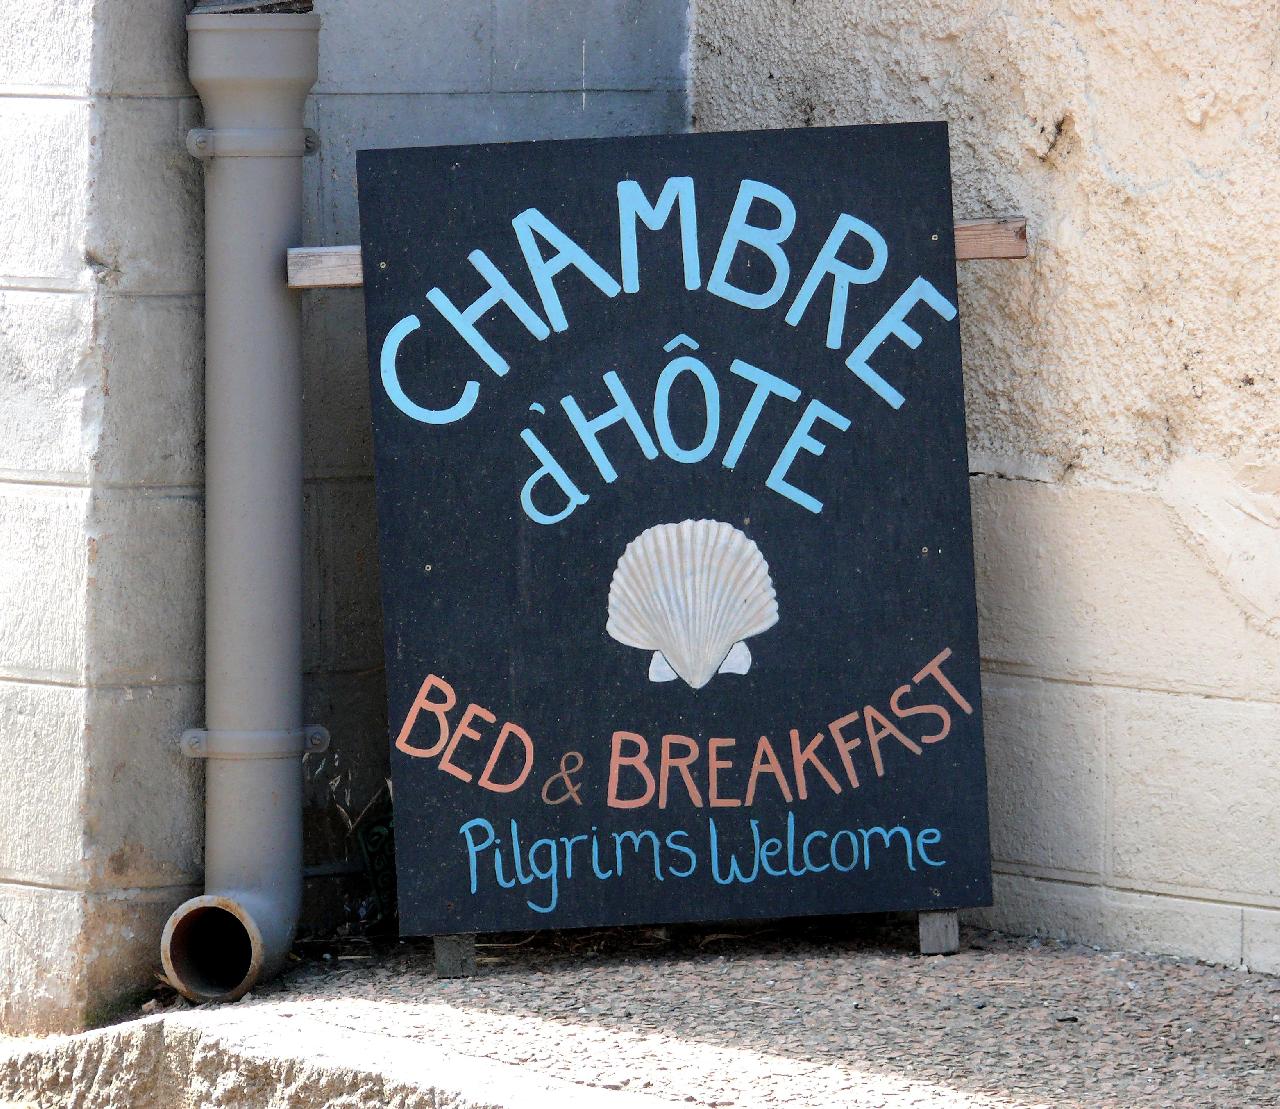 CHAMBRE
d'HÔTE
BED & BREAKFAST
Pilgrims Welcome